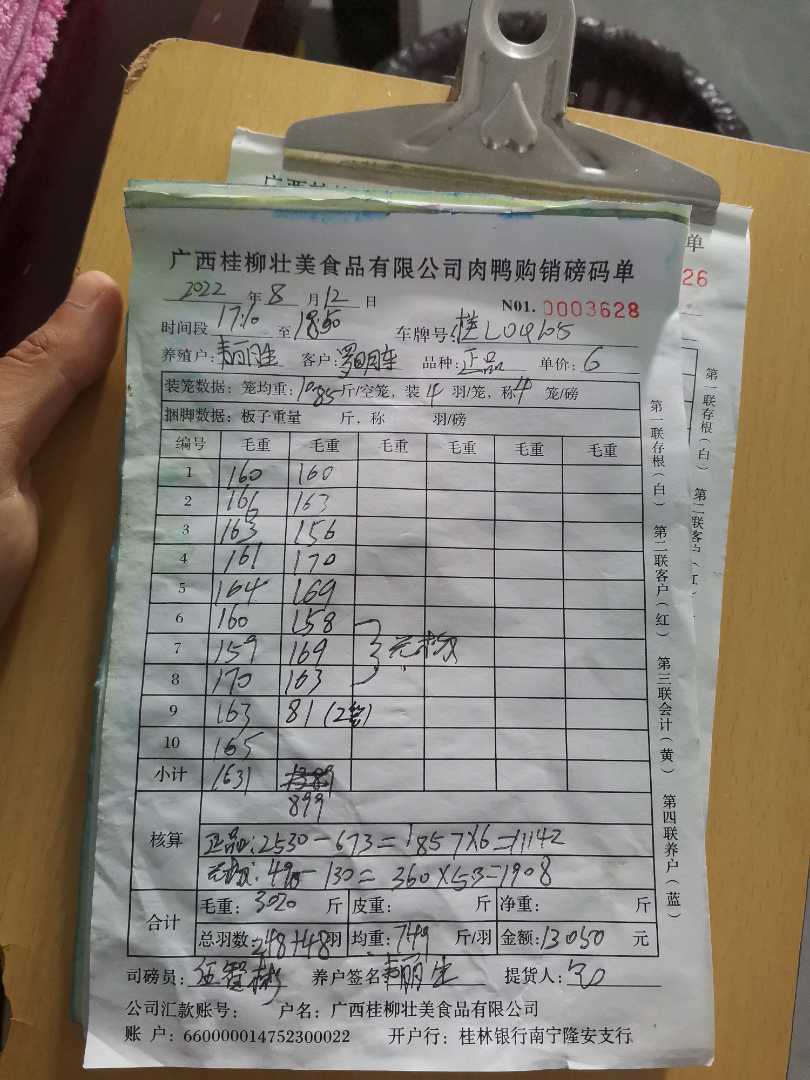 广西桂柳壮美食品有限公司肉鸭购销磅码单
2022 年 8 月 12 日 N01. 0003628
时间段 17:10 至 18:50 车牌号: 桂L04605
养殖户: 韦丽生 客户: 品种: 正品 单价: 6
装笼数据: 笼均重: 10.85 斤/空笼, 装 4 羽/笼, 称 4 笼/磅
捆脚数据: 板子重量 斤, 称 羽/磅
编号 毛重 毛重 毛重 毛重 毛重 毛重
1 160 160
2 166 163
3 163 156
4 161 170
5 164 169
6 160 158
7 159 169
8 170 163
9 163 81 (2笼)
10 165
小计 1631
899
核算
正品: 2530-673=1857×6=11142
490-130=360×5.3=1908
合计
毛重: 3020 斤 皮重: 斤 净重: 斤
总羽数: 248+48 羽 均重: 7.49 斤/羽 金额: 13050 元
司磅员: 伍智彬 养户签名: 韦丽生 提货人:
公司汇款账号: 户名: 广西桂柳壮美食品有限公司
账 户: 660000014752300022 开户行: 桂林银行南宁隆安支行
第一联存根(白) 第二联客户(红) 第三联会计(黄) 第四联养户(蓝)
单
26
第一联存根(白)